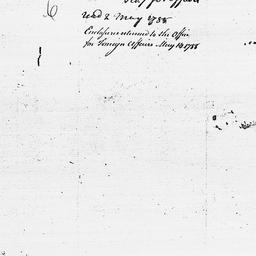 6
read 2 May 1788
Enclosure returned to the Office
for Foreign Affairs May 14 1788